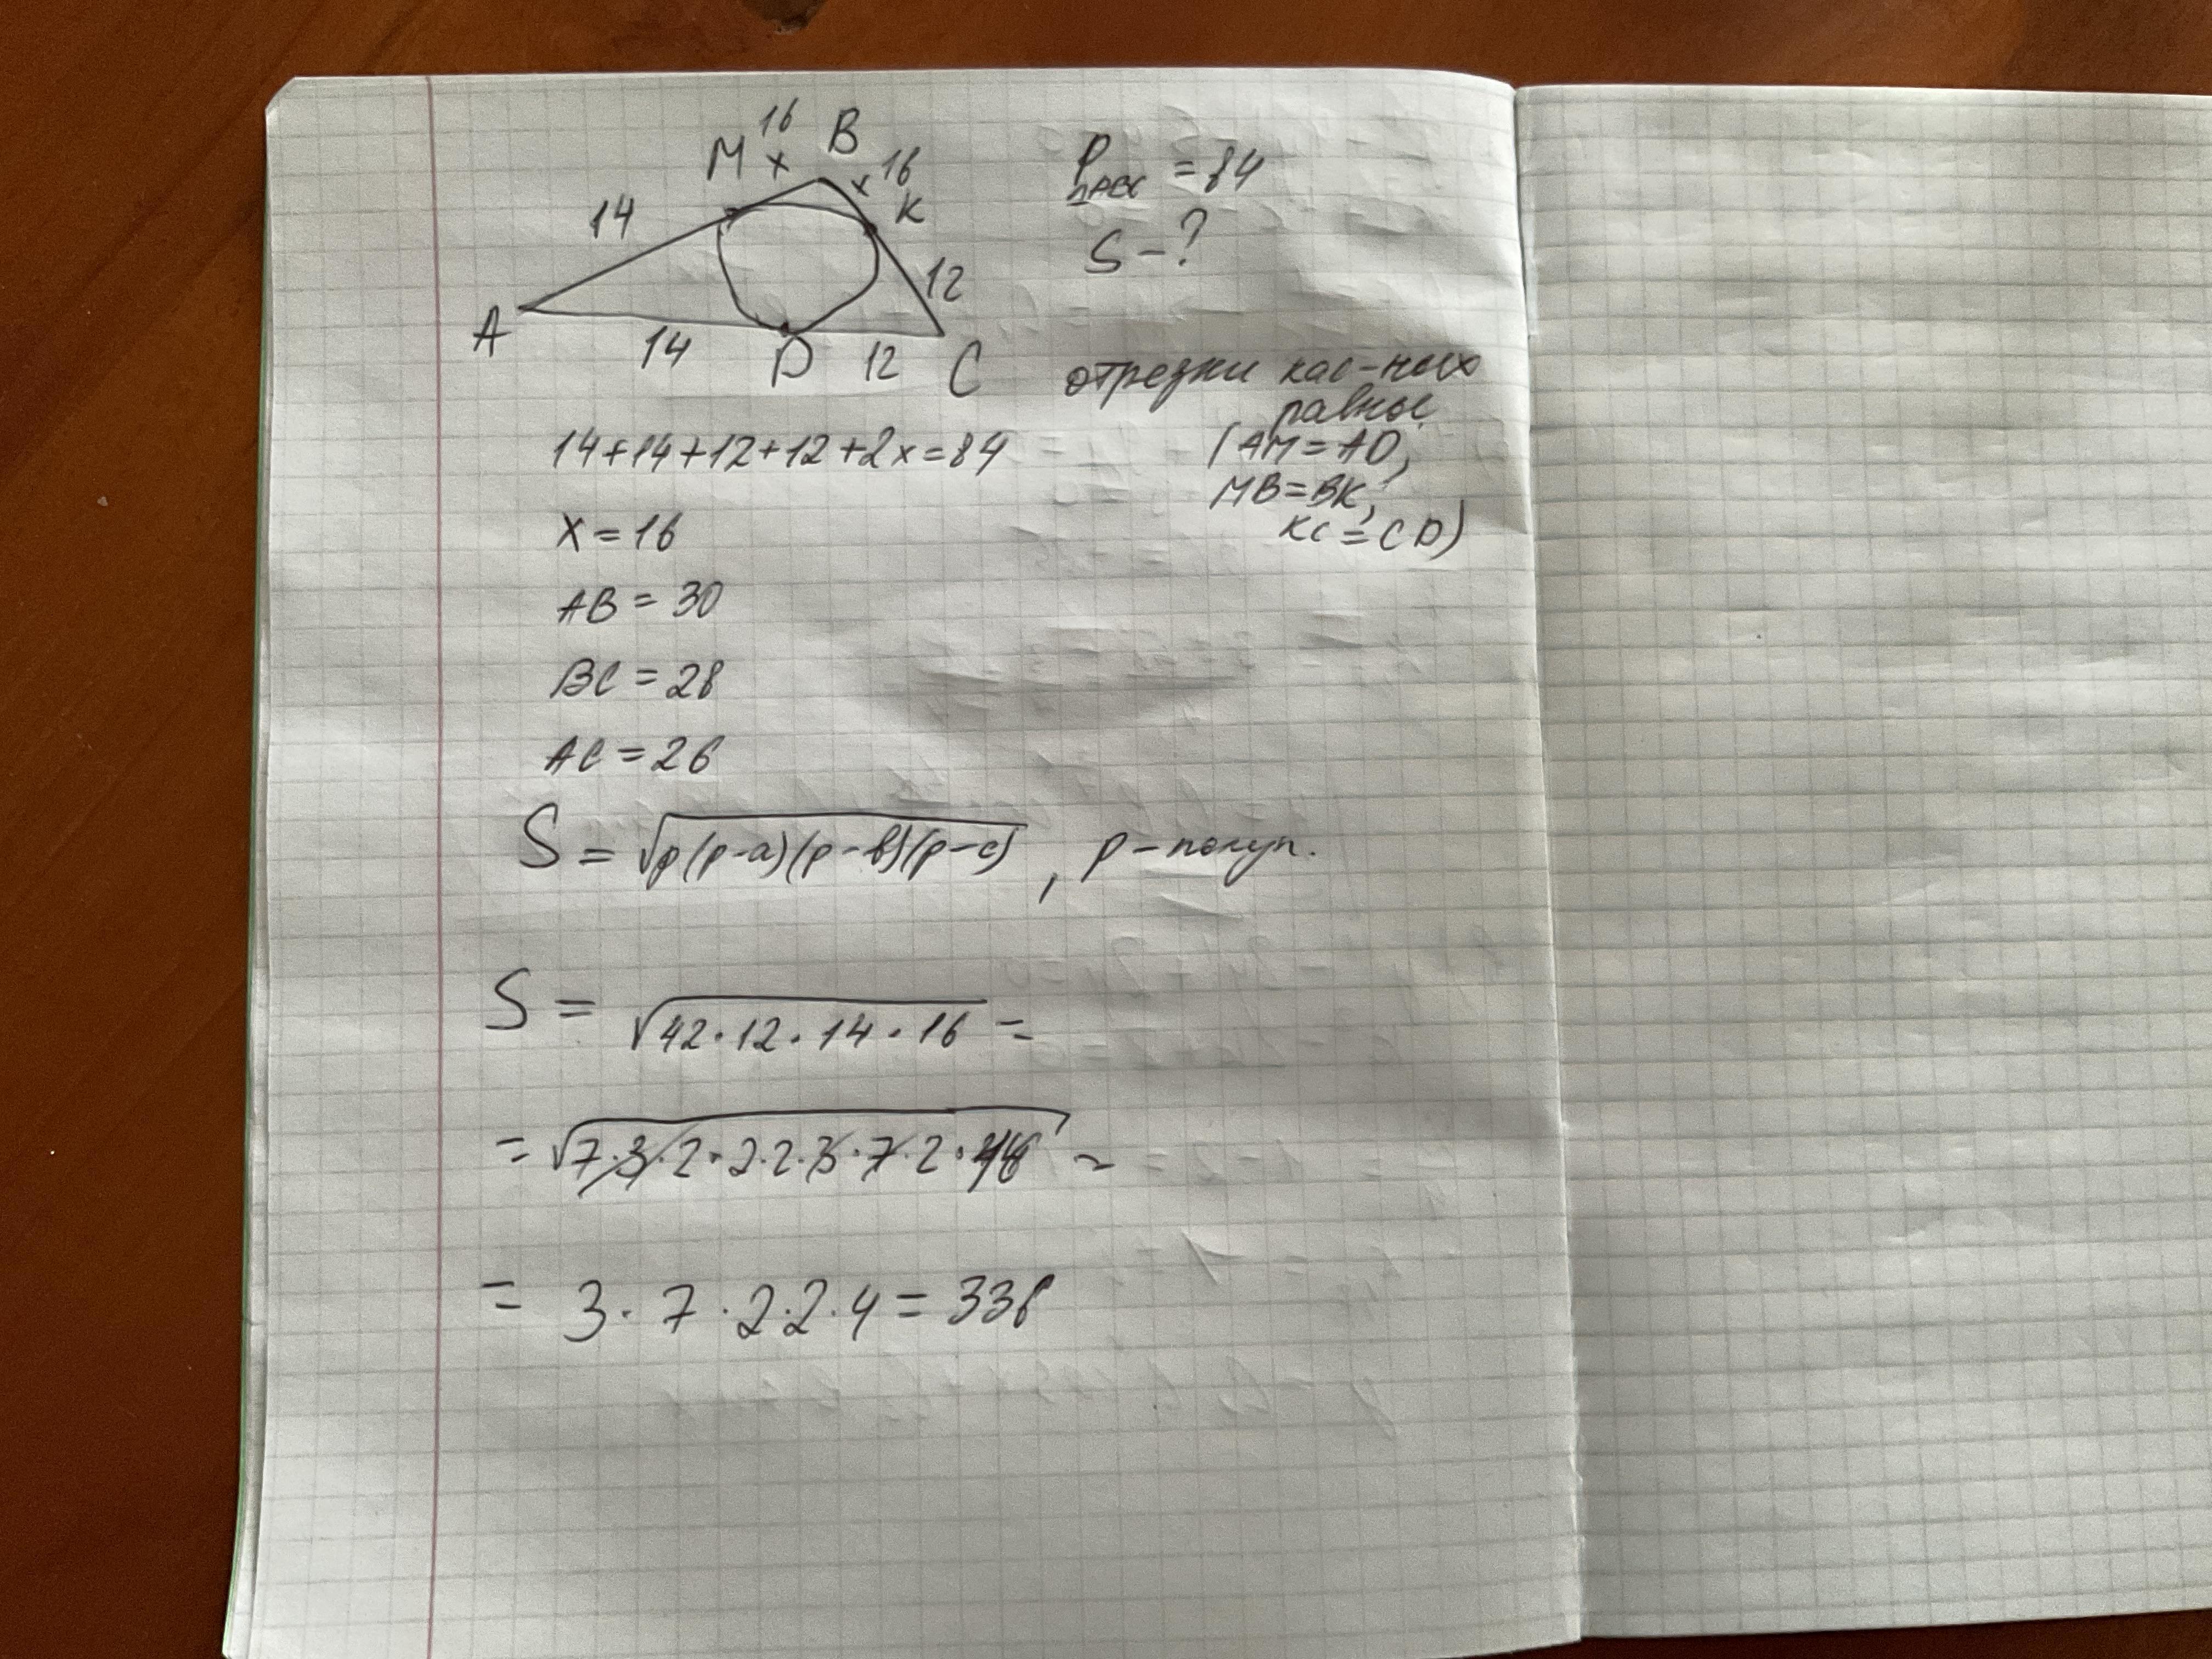 16
M x B
x 16
K
14
12
A
14 D 12 C
P△ABC = 84
S - ?
отрезки кас-ных
равны
(AM = AD,
MB = BK,
KC = CD)
14+14+12+12+2x=84
x = 16
AB = 30
BC = 28
AC = 26
S = √p(p-a)(p-b)(p-c) , p - полуп.
S = √42·12·14·16 =
= √7·3·2·2·2·3·7·2· =
= 3·7·2·2·4 = 336